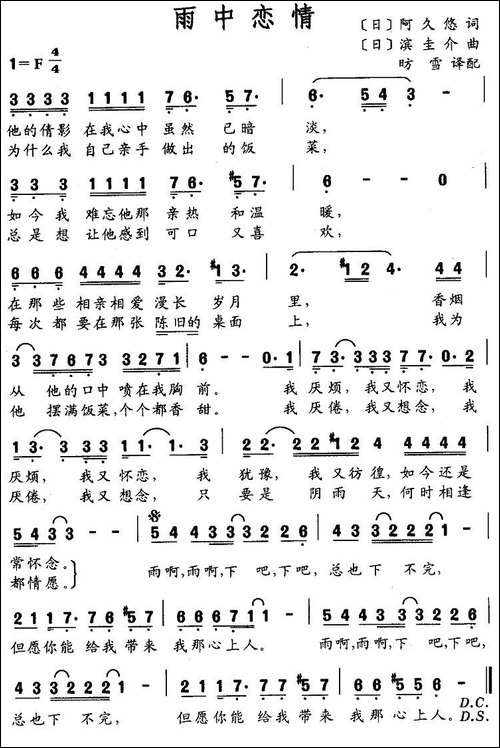 雨中恋情
〔日〕阿久悠 词
〔日〕滨圭介 曲
1=F 4/4
昉雪 译配
3 3 3 3 1 1 1 1 7 6· 5 7· | 6· 5 4 3 -
他的倩影 在我心中 虽然 已暗 淡,
为什么我 自己亲手 做出 的饭 菜,
3 3 3 1 1 1 1 7 6 7· #5 7· | 6 - - 0
如今我 难忘他那 亲热 和温 暖,
总是想 让他感到 可口 又喜 欢,
6 6 6 4 4 4 4 3 2· #1 3· | 2· #1 2 4· 4 4
在那些 相亲相爱 漫长 岁月 里, 香烟
每次都 要在那张 陈旧的 桌面 上, 我为
3 3 7 6 7 3 3 2 7 1 | 6 - - 0·1 | 7 3· 3 3 3 7 7 0·2
从 他的口中 喷在我胸 前。 我 厌烦, 我又怀恋, 我
他 摆满饭菜,个个都香 甜。 我 厌倦, 我又想念, 我
1 3· 3 3 1 1·1·3 | 2 2· 2 2 #1 2 4 4 3 2 2
厌烦, 我又怀恋, 我 犹豫, 我又彷徨,如今还是
厌倦, 我又想念, 只 要是 阴雨 天,何时相逢
5 4 3 3 - - | 5 4 4 3 3 3 2 2 2 6 | 4 3 3 2 2 2 1 -
常怀念。 雨啊,雨啊,下 吧,下吧, 总也下 不完,
都情愿。
2 1 1 7· 7 6 #5 7 | 6 6 6 7 1 1 - | 5 4 4 3 4 3 3 2 2 6
但愿你能 给我带来 我那心上人。 雨啊,雨啊,下 吧,下吧,
4 3 3 2 2 2 1 - | 2 1 1 7· 7 6 #5 7 | 6 6 #5 5 6 -
总也下 不完, 但愿你能 给我带来 我那心上人。
D.C.
D.S.